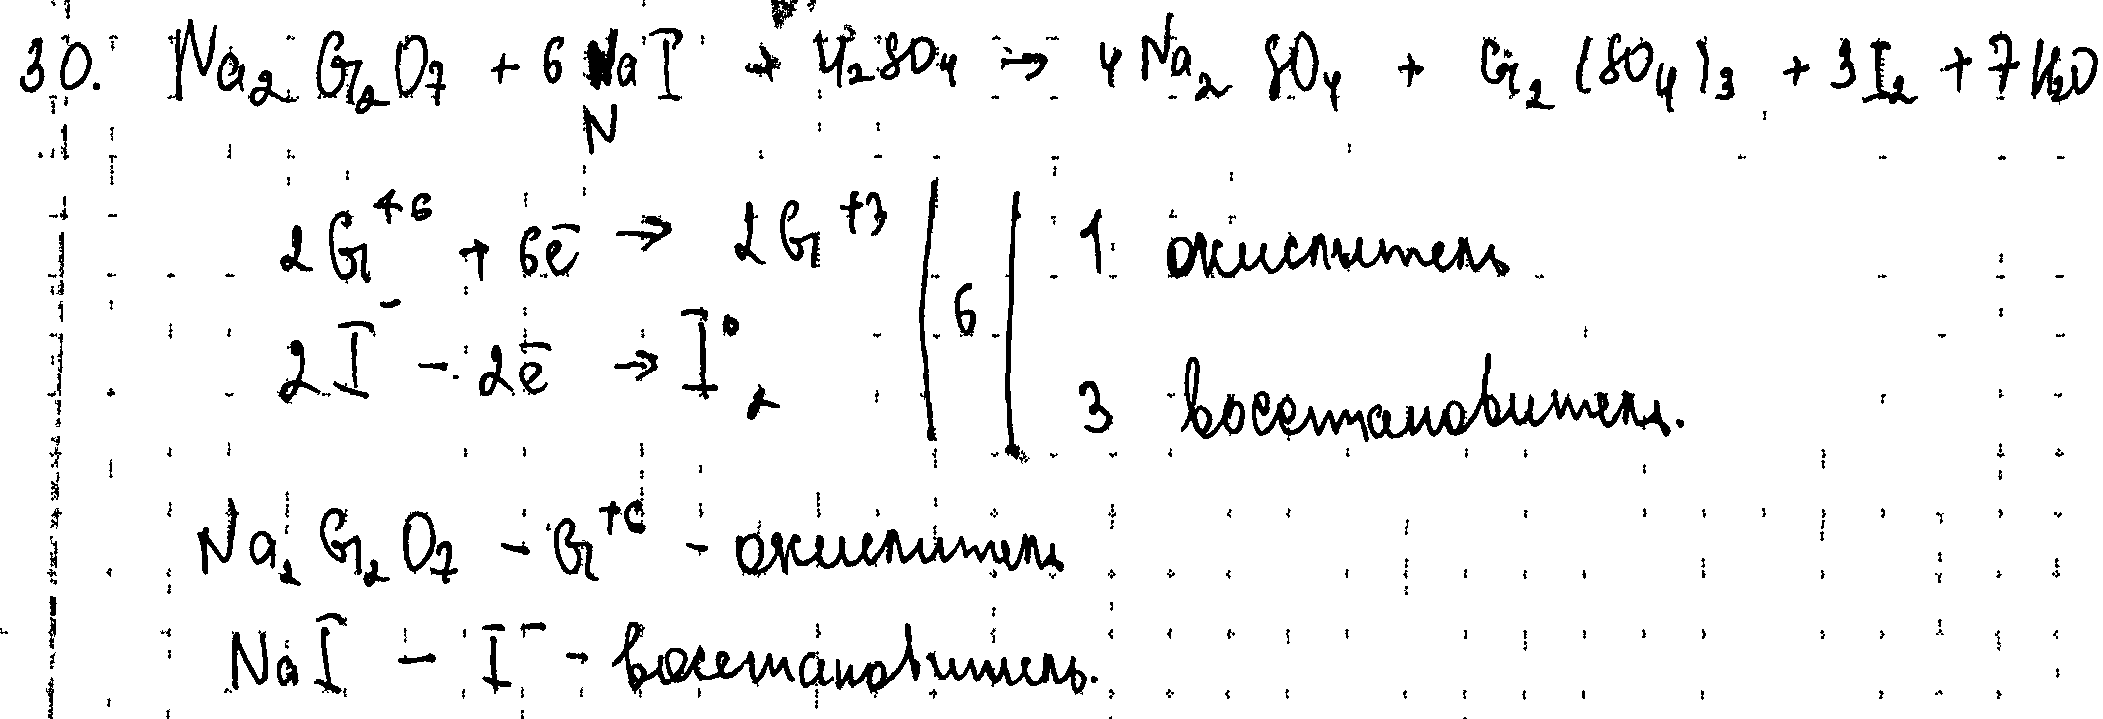 30. Na₂Cr₂O₇ + 6NaI + H₂SO₄ → 4Na₂SO₄ + Cr₂(SO₄)₃ + 3I₂ + 7H₂O
N
2Cr⁺⁶ + 6ē → 2Cr⁺³ | 6 | 1 окислитель
2I⁻ - 2ē → I⁰₂ 3 восстановитель.
Na₂Cr₂O₇ - Cr⁺⁶ - окислитель
NaI - I⁻ - восстановитель.